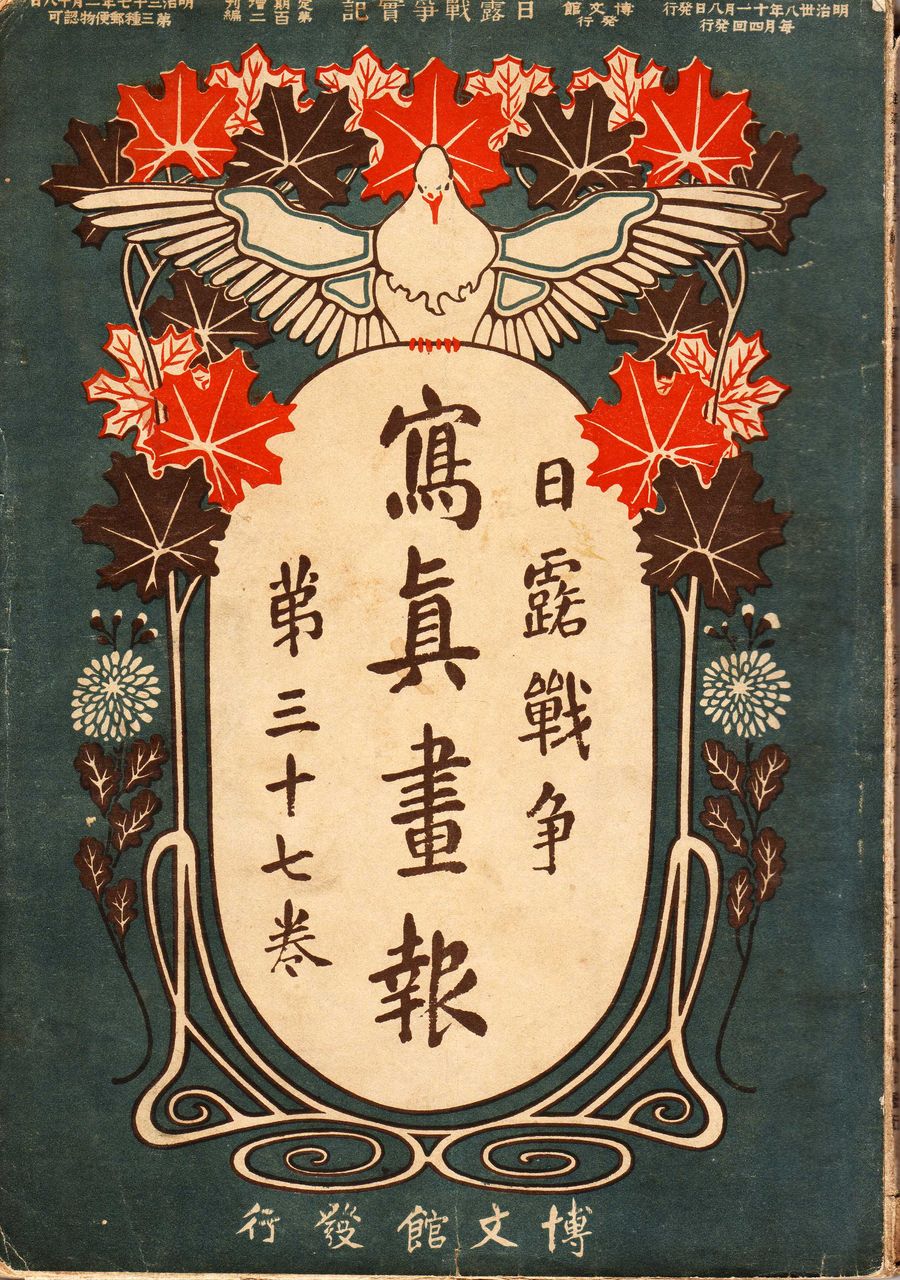 明治丗八年十一月八日発行
毎月四回発行
博文館
発行
日露戰爭實記
定期增刊
第百二編
明治三十七年二月十八日
第三種郵便物認可
日露戰争
寫眞畫報
第三十七巻
博文館發行